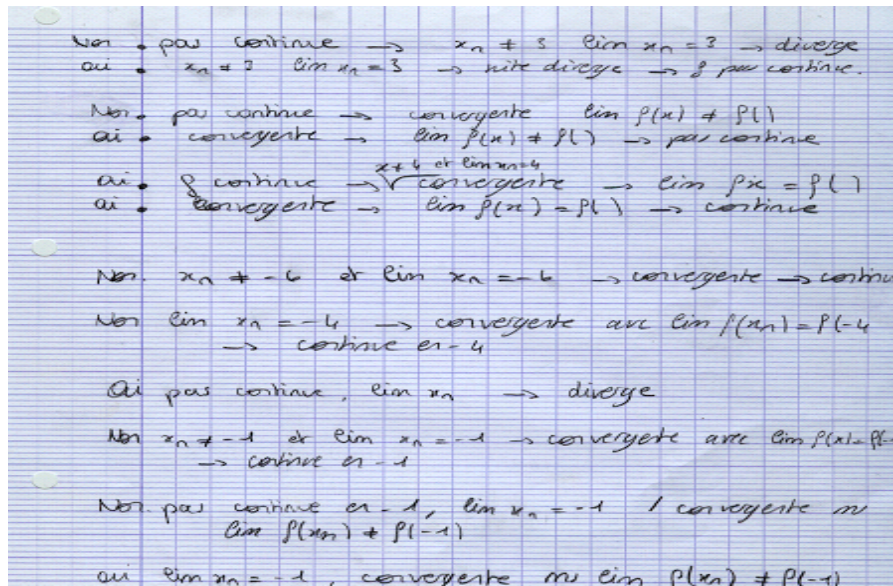 Non . pas continue → xn ≠ 3 lim xn = 3 → diverge
oui . xn ≠ 3 lim xn = 3 → suite diverge → f pas continue.
Non . pas continue → convergente lim f(x) ≠ f( )
oui . convergente → lim f(x) ≠ f( ) → pas continue
x ≠ 4 et lim xn = 4
oui . f continue → convergente → lim fx = f( )
oui . convergente → lim f(x) = f( ) → continue
Non. xn ≠ -6 et lim xn = -6 → convergente → continu
Non lim xn = -4 → convergente avec lim f(xn) = f(-4
→ continue en -4
Oui pas continue, lim xn → diverge
Non xn ≠ -1 et lim xn = -1 → convergente avec lim f(x) = f(-
→ continue en -1
Non. pas continue en -1, lim xn = -1 / convergente
lim f(xn) ≠ f(-1)
oui lim xn = -1, convergente lim f(xn) ≠ f(-1)